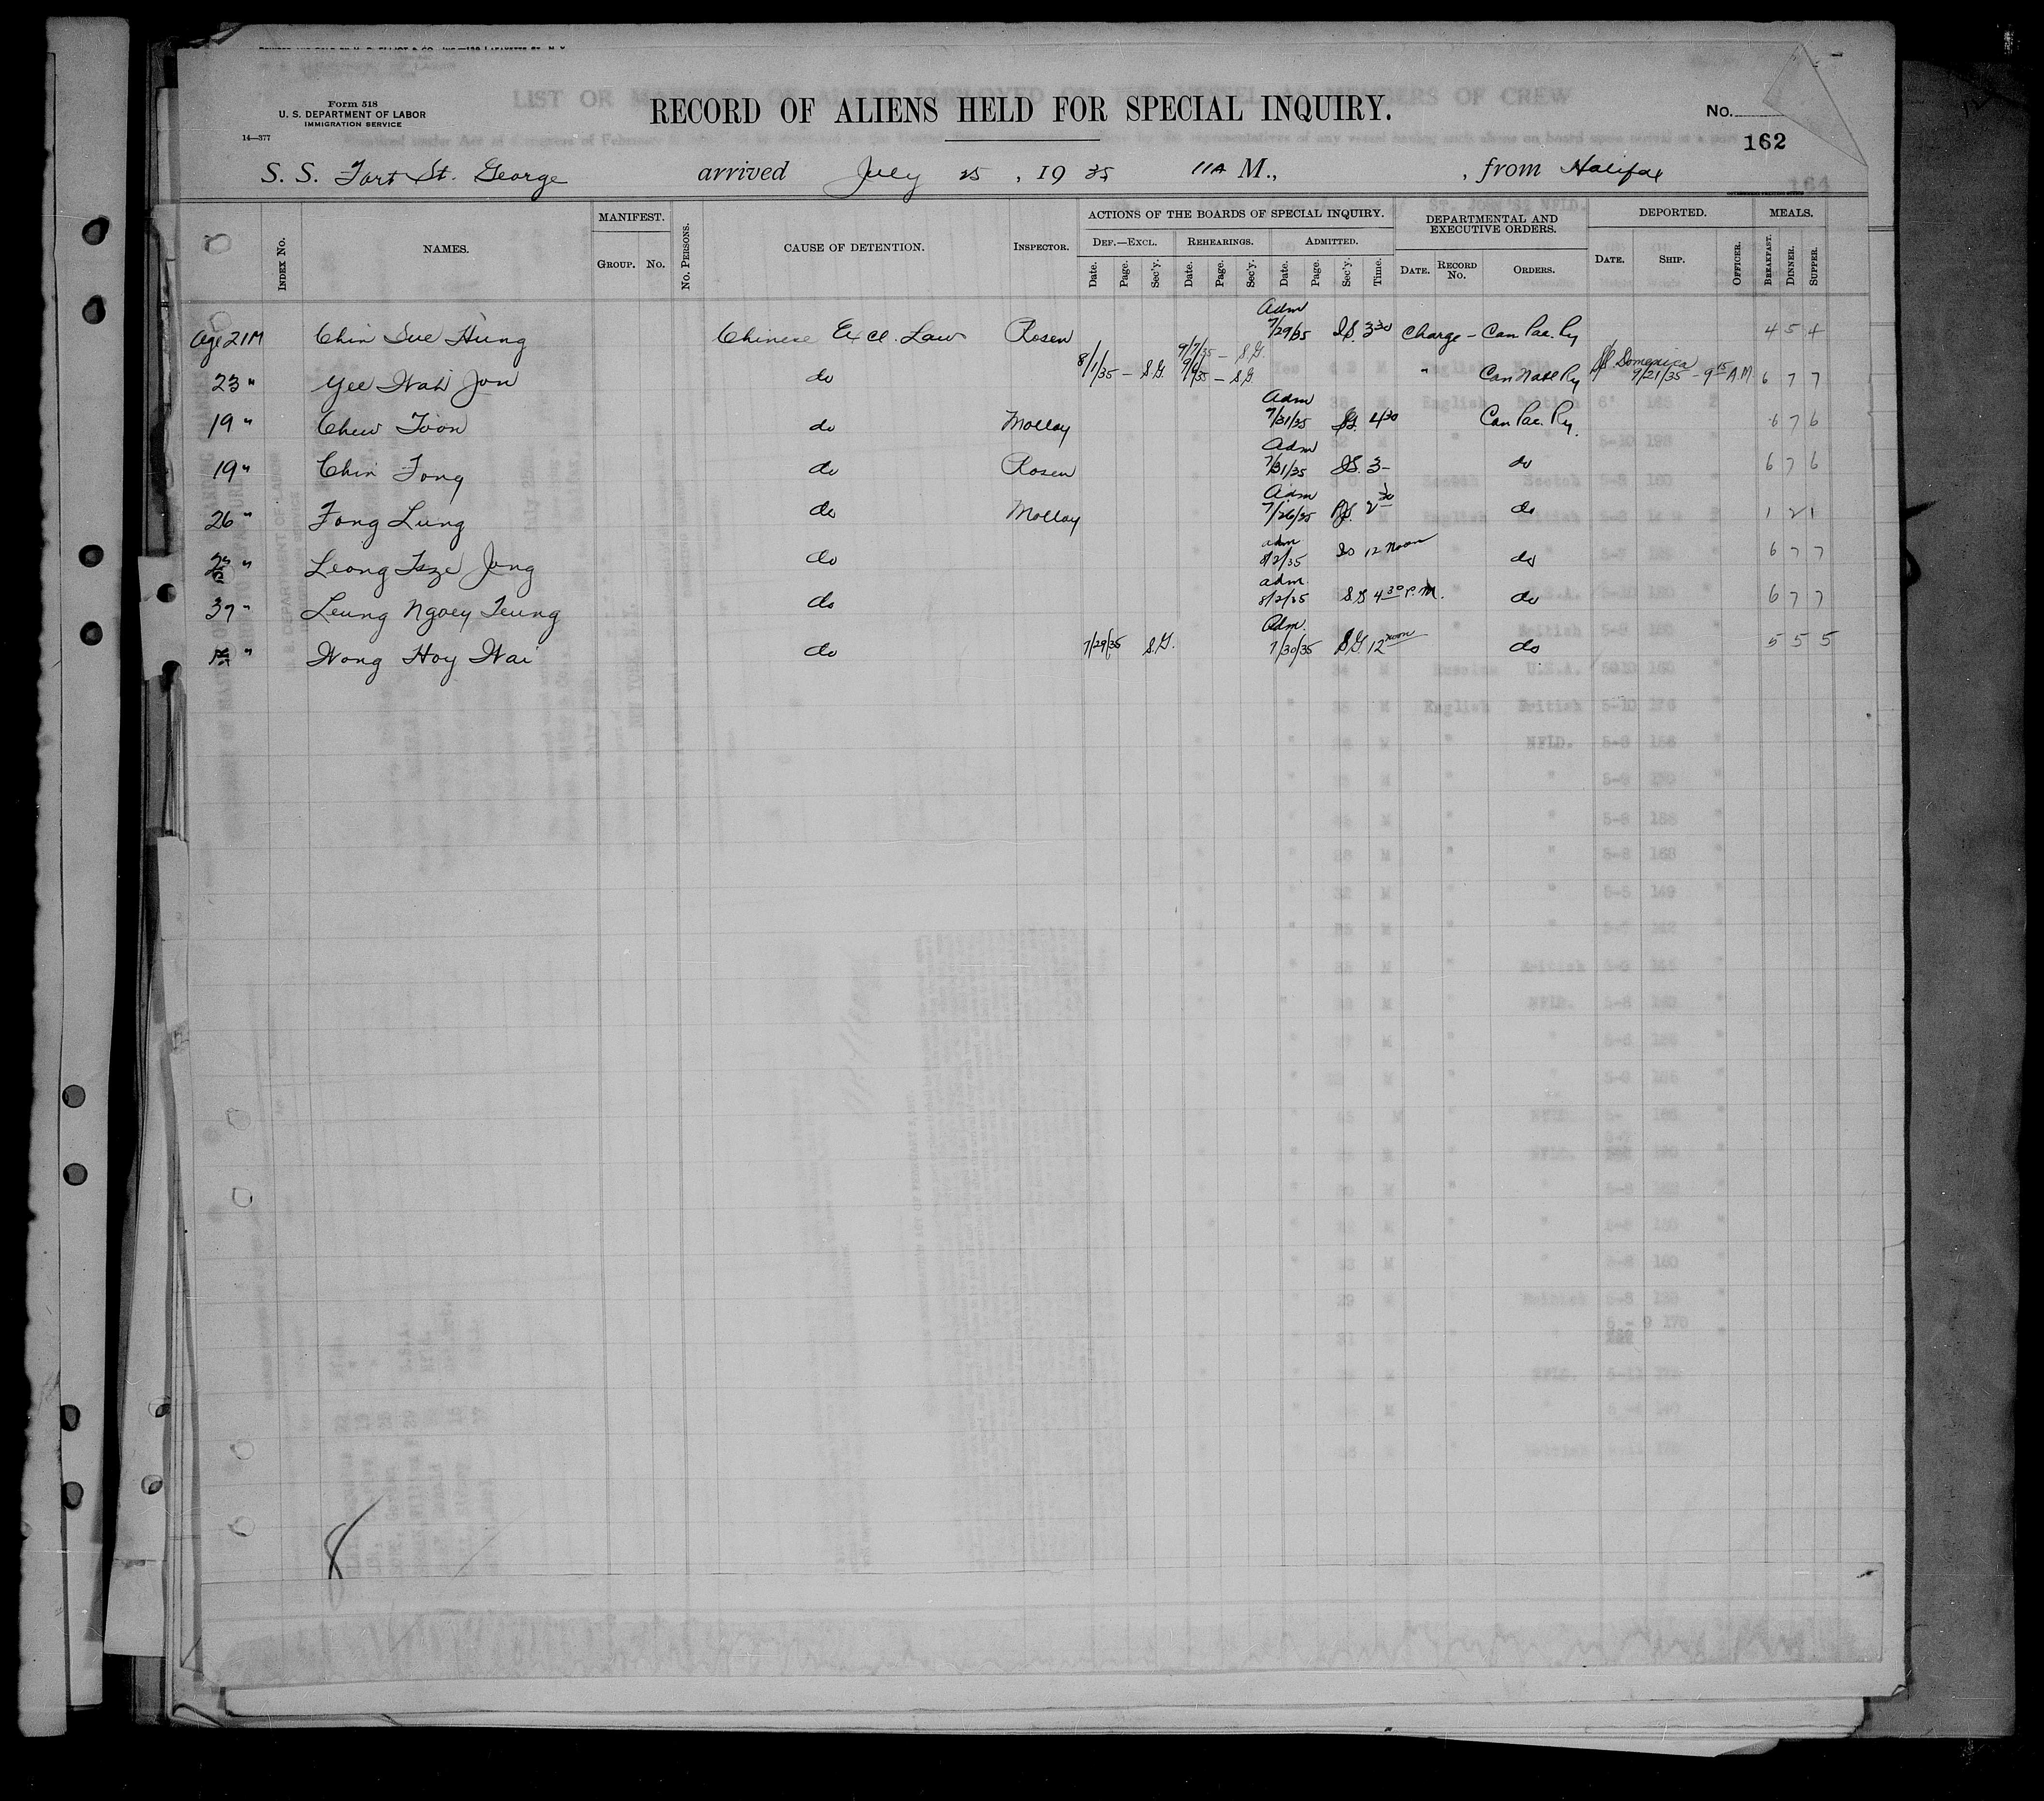 Form 518
U. S. DEPARTMENT OF LABOR
IMMIGRATION SERVICE
14—377
RECORD OF ALIENS HELD FOR SPECIAL INQUIRY.
No.
162
S. S. Fort St. George arrived July 25, 1935 11A M., , from Halifax
INDEX No. NAMES. MANIFEST. GROUP. No. No. PERSONS. CAUSE OF DETENTION. INSPECTOR. ACTIONS OF THE BOARDS OF SPECIAL INQUIRY. DEF.—EXCL. Date. Page. Sec'y. REHEARINGS. Date. Page. Sec'y. ADMITTED. Date. Page. Sec'y. Time. DEPARTMENTAL AND EXECUTIVE ORDERS. DATE. RECORD No. ORDERS. DEPORTED. DATE. SHIP. OFFICER. MEALS. BREAKFAST. DINNER. SUPPER.
Age 21 M Chin Sue Hung Chinese Excl. Law Rosen Adm 7/29/35 S.S. 3 30 Charge - Can Pac. Ry 4 5 4
23 " Yee Wah Jon do 8/1/35 - S.G. 9/7/35 - S.G. 9/6/35 - S.G. " Can Natl Ry SS Domenica 9/21/35 - 9 15 A.M. 6 7 7
19 " Chew Toon do Molloy Adm 7/31/35 S.G. 4 30 Can Pac. Ry. 6 7 6
19 " Chin Fong do Rosen Adm 7/31/35 S.S. 3- do 6 7 6
26 " Fong Lung do Molloy Adm 7/26/35 2 30 do 1 2 1
" Leong Tsze Jong do adm 8/2/35 12 noon do 6 7 7
37 " Leung Ngoey Teung do adm. 8/2/35 S.G 4 30 P.M. do 6 7 7
" Wong Hoy Wai do 7/29/35 S.G. Adm. 7/30/35 S.G. 12 noon do 5 5 5
8